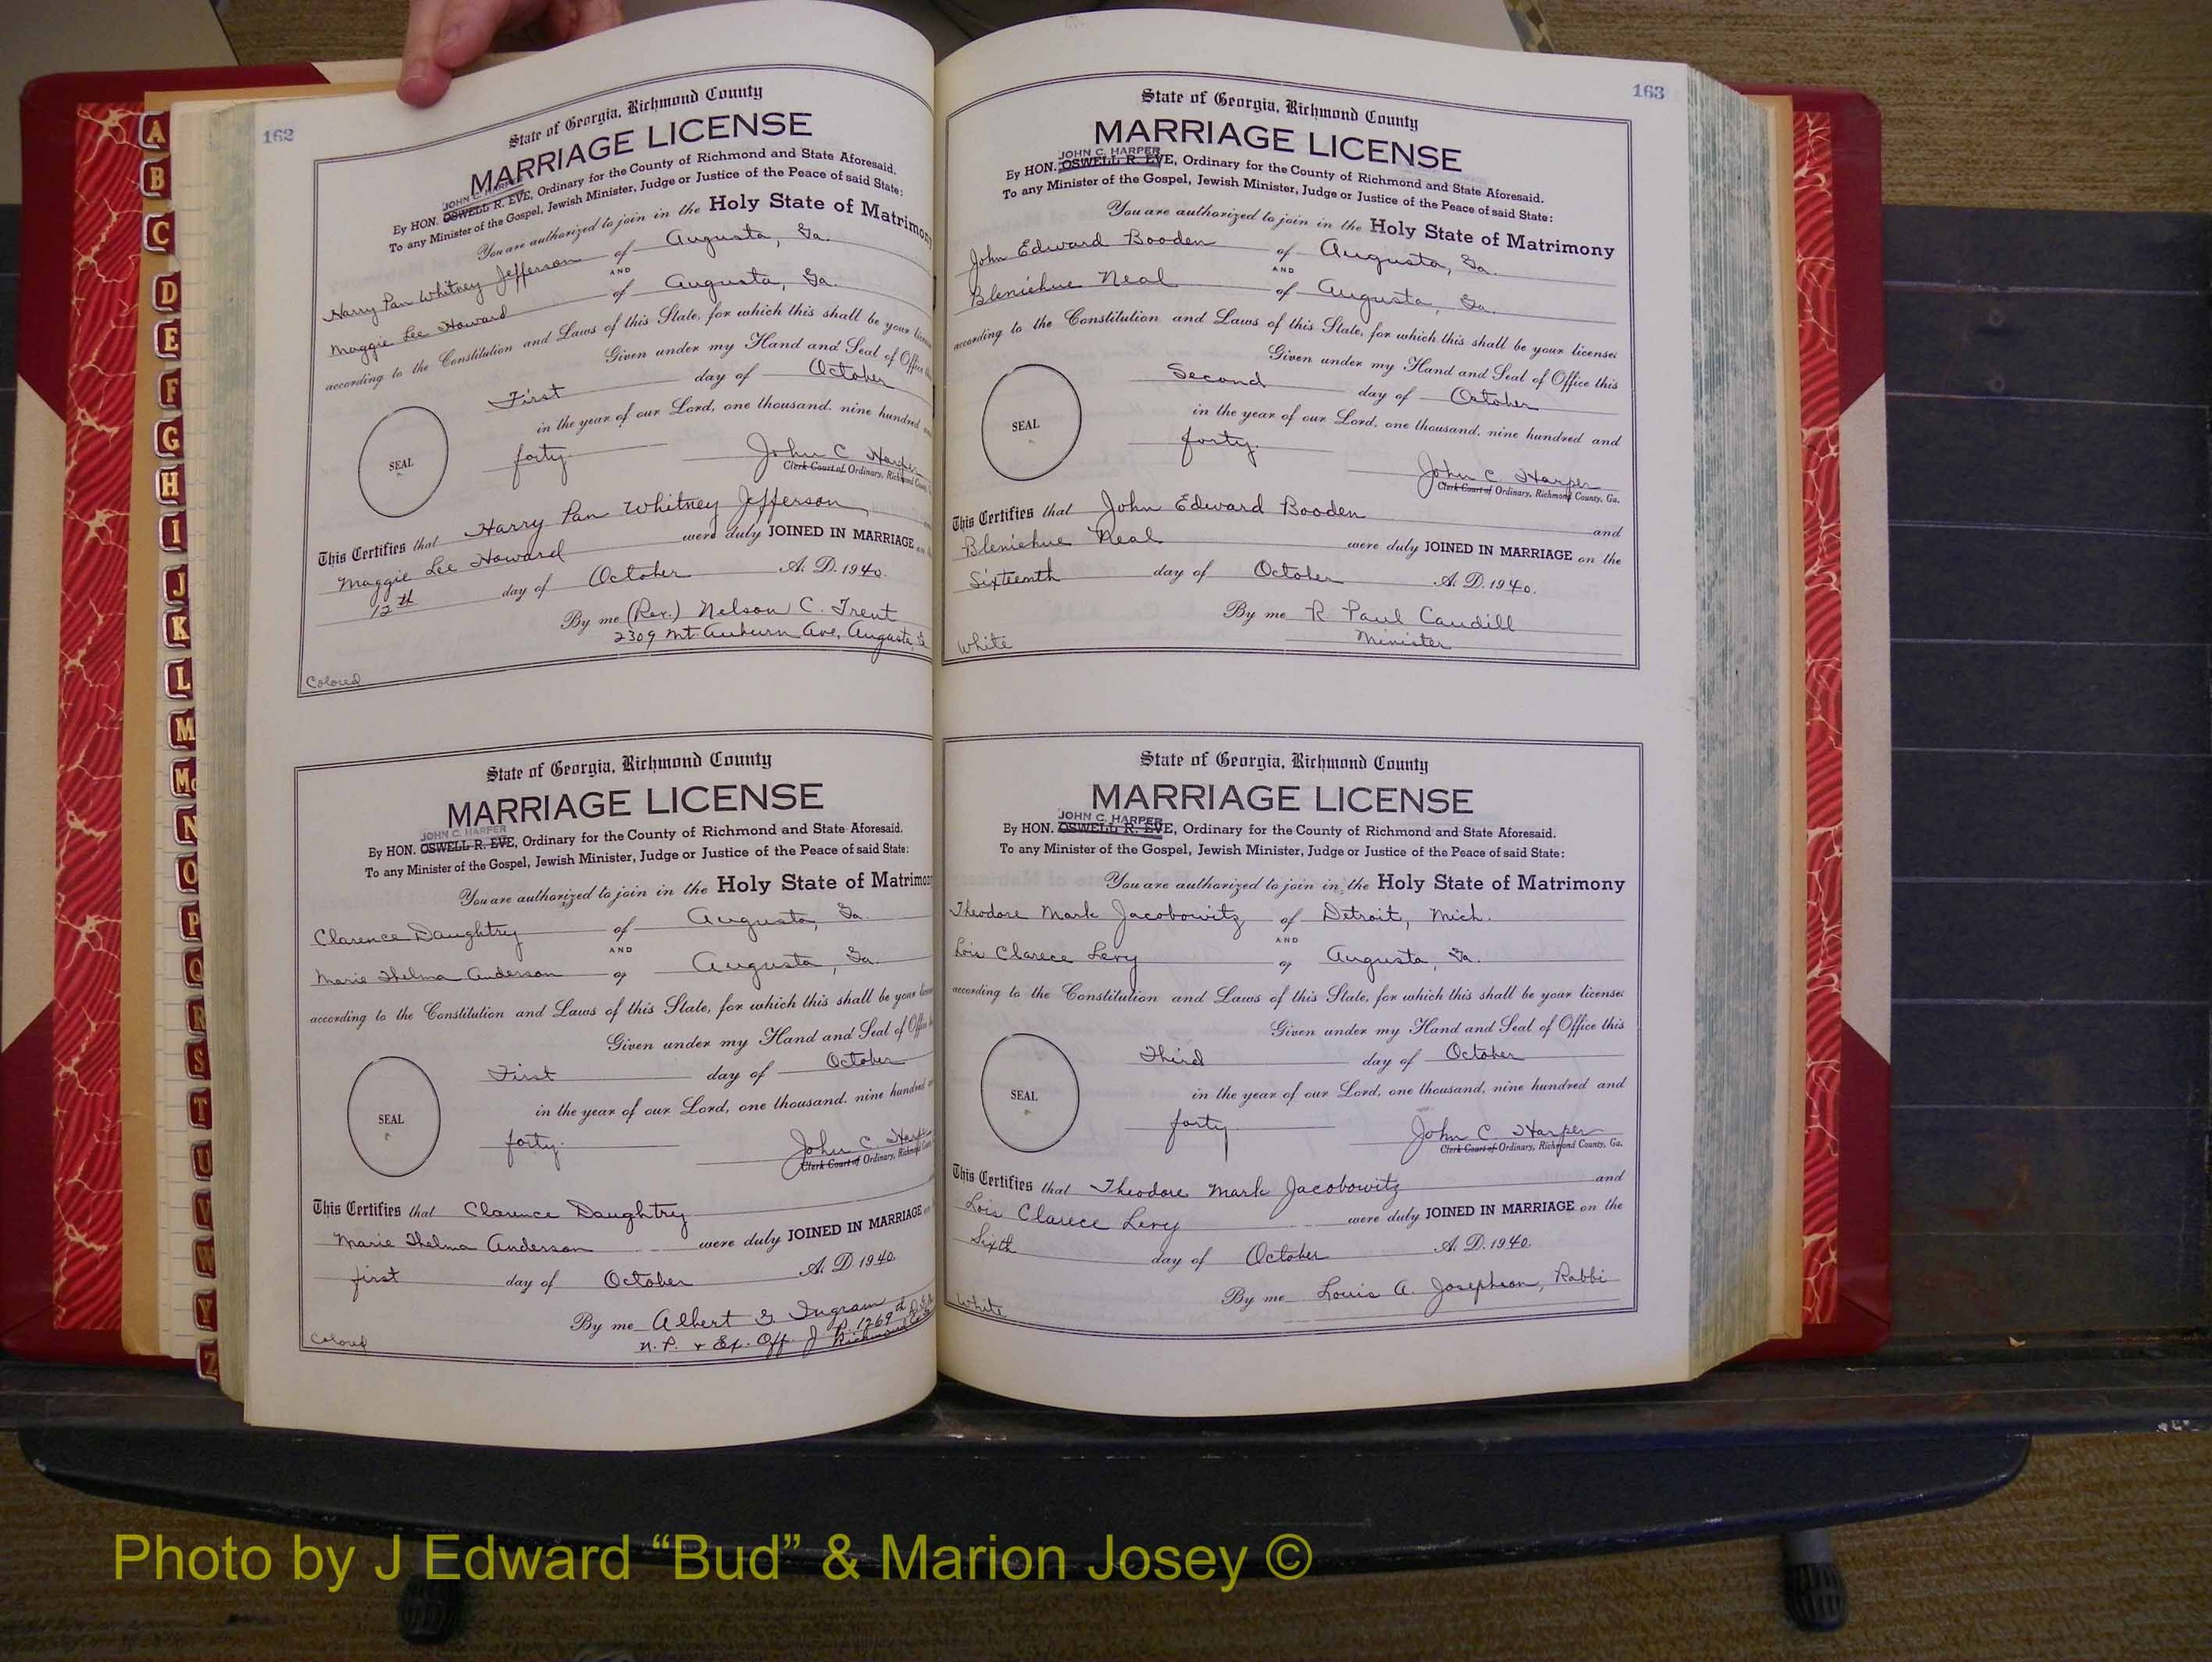 162
State of Georgia, Richmond County
MARRIAGE LICENSE
JOHN C. HARPER
By HON. OSWELL R. EVE, Ordinary for the County of Richmond and State Aforesaid.
To any Minister of the Gospel, Jewish Minister, Judge or Justice of the Peace of said State:
You are authorized to join in the Holy State of Matrimony
Harry Pan Whitney Jefferson of Augusta, Ga.
AND
Maggie Lee Howard of Augusta, Ga.
according to the Constitution and Laws of this State, for which this shall be your license
Given under my Hand and Seal of Office
First day of October
in the year of our Lord, one thousand, nine hundred
forty.
SEAL
John C Harper
Clerk Court of Ordinary, Richmond County
This Certifies that Harry Pan Whitney Jefferson
Maggie Lee Howard were duly JOINED IN MARRIAGE
12th day of October A. D. 1940.
By me (Rev.) Nelson C. Trent
2309 Mt. Auburn Ave, Augusta, Ga
Colored
State of Georgia, Richmond County
MARRIAGE LICENSE
JOHN C. HARPER
By HON. OSWELL R. EVE, Ordinary for the County of Richmond and State Aforesaid.
To any Minister of the Gospel, Jewish Minister, Judge or Justice of the Peace of said State:
You are authorized to join in the Holy State of Matrimony
Clarence Daughtry of Augusta, Ga.
AND
Marie Thelma Anderson of Augusta, Ga.
according to the Constitution and Laws of this State, for which this shall be your
Given under my Hand and Seal of Office
First day of October
in the year of our Lord, one thousand, nine hundred
forty.
SEAL
John C Harper
Clerk Court of Ordinary, Richmond
This Certifies that Clarence Daughtry
Marie Thelma Anderson were duly JOINED IN MARRIAGE
first day of October A. D. 1940
By me Albert G Ingram
N. P. & Ex. Off. J P. 1269th Richmond
Colored
163
State of Georgia, Richmond County
MARRIAGE LICENSE
JOHN C. HARPER
By HON. OSWELL R. EVE, Ordinary for the County of Richmond and State Aforesaid.
To any Minister of the Gospel, Jewish Minister, Judge or Justice of the Peace of said State:
You are authorized to join in the Holy State of Matrimony
John Edward Booden of Augusta, Ga.
AND
Bleniehue Neal of Augusta, Ga.
according to the Constitution and Laws of this State, for which this shall be your license:
Given under my Hand and Seal of Office this
Second day of October
in the year of our Lord, one thousand, nine hundred and
forty.
SEAL
John C. Harper
Clerk Court of Ordinary, Richmond County, Ga.
This Certifies that John Edward Booden and
Bleniehue Neal were duly JOINED IN MARRIAGE on the
Sixteenth day of October A. D. 1940.
By me R. Paul Caudill
Minister
White
State of Georgia, Richmond County
MARRIAGE LICENSE
JOHN C. HARPER
By HON. OSWELL R. EVE, Ordinary for the County of Richmond and State Aforesaid.
To any Minister of the Gospel, Jewish Minister, Judge or Justice of the Peace of said State:
You are authorized to join in the Holy State of Matrimony
Theodore Mark Jacobowitz of Detroit, Mich.
AND
Lois Clarece Levy of Augusta, Ga.
according to the Constitution and Laws of this State, for which this shall be your license:
Given under my Hand and Seal of Office this
Third day of October
in the year of our Lord, one thousand, nine hundred and
forty
SEAL
John C. Harper
Clerk Court of Ordinary, Richmond County, Ga.
This Certifies that Theodore Mark Jacobowitz and
Lois Clarece Levy were duly JOINED IN MARRIAGE on the
Sixth day of October A. D. 1940.
By me Louis A. Josephson, Rabbi
White
A
B
C
D
E
F
G
H
I
J
K
L
M
Mc
N
O
P
Q
R
S
T
U
V
W
Y
Z
Photo by J Edward “Bud” & Marion Josey ©